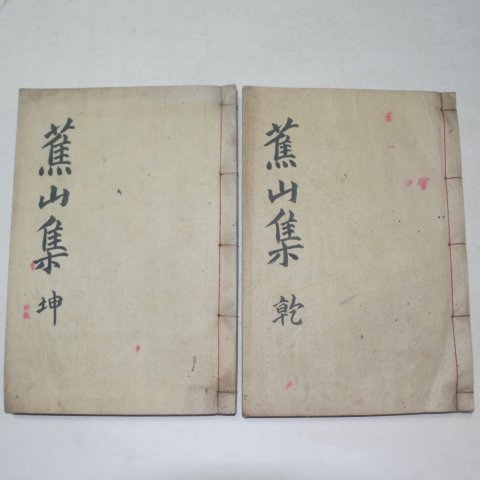 蕉山集 坤
蕉山集 乾